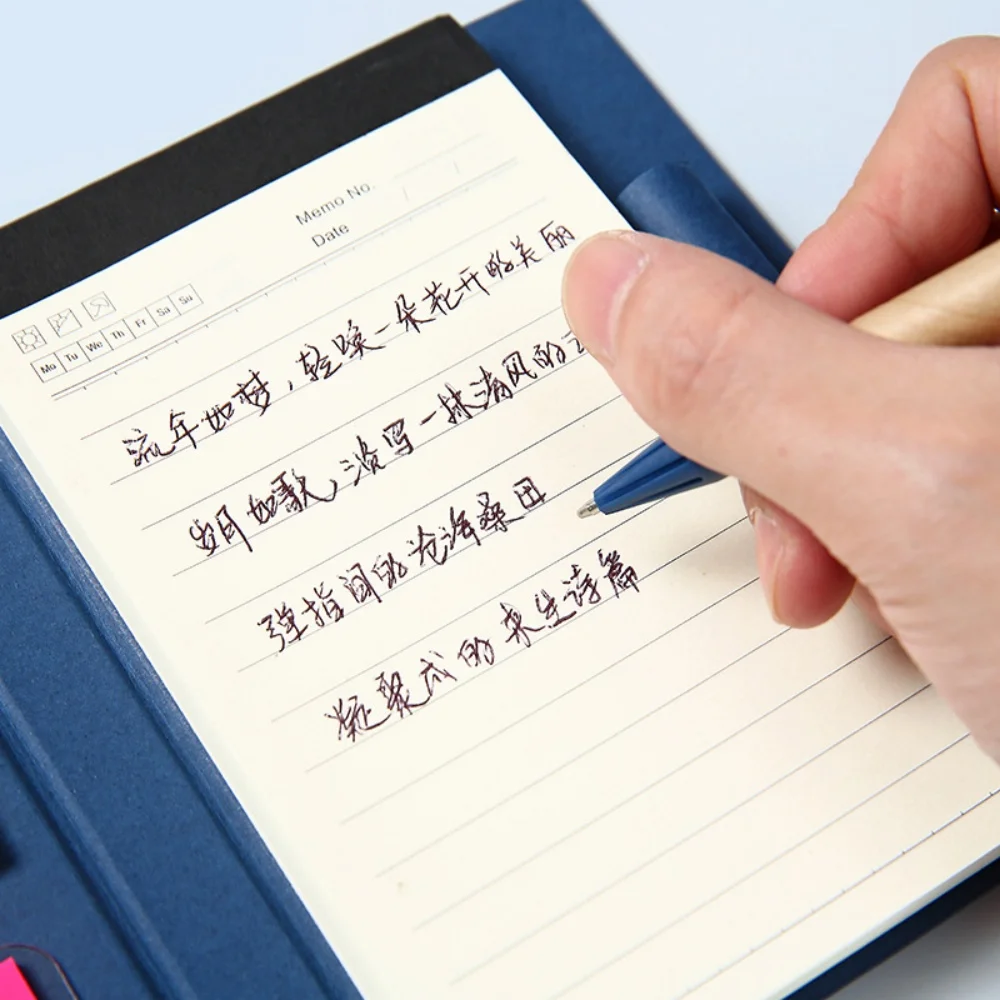 Memo No.
Date / /
Mo Tu We Th Fr Sa Su
流年如梦，轻唤一朵花开的美丽
岁月如歌，淡写一抹清风的
弹指间的沧海桑田
凝聚成的来生诗篇